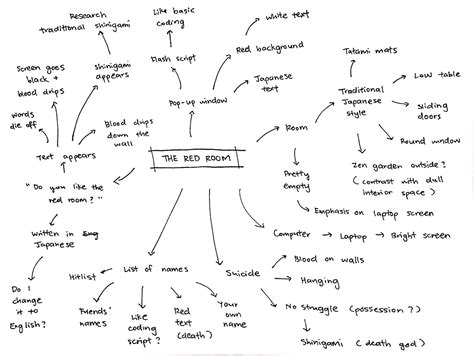 Research
traditional shinigami
Like basic
coding
White text
Screen goes
black +
blood drips
Shinigami
appears
Flash script
Red background
Tatami mats
Words
die off
Blood drips
down the
wall
Pop-up window
Japanese
text
Traditional
Japanese
style
Low table
Sliding
doors
Text appears
THE RED ROOM
Room
Round window
"Do you like the
red room?"
Pretty
empty
Zen garden outside?
(contrast with dull
interior space)
Emphasis on laptop screen
Written in Eng
Japanese
Computer → Laptop → Bright screen
Hitlist
List of names
Suicide
Blood on walls
Hanging
Do I
change
it to
English?
Friends'
names
Like
coding
script?
Red
text
(death)
Your
own
name
No struggle (possession?)
Shinigami (death god)